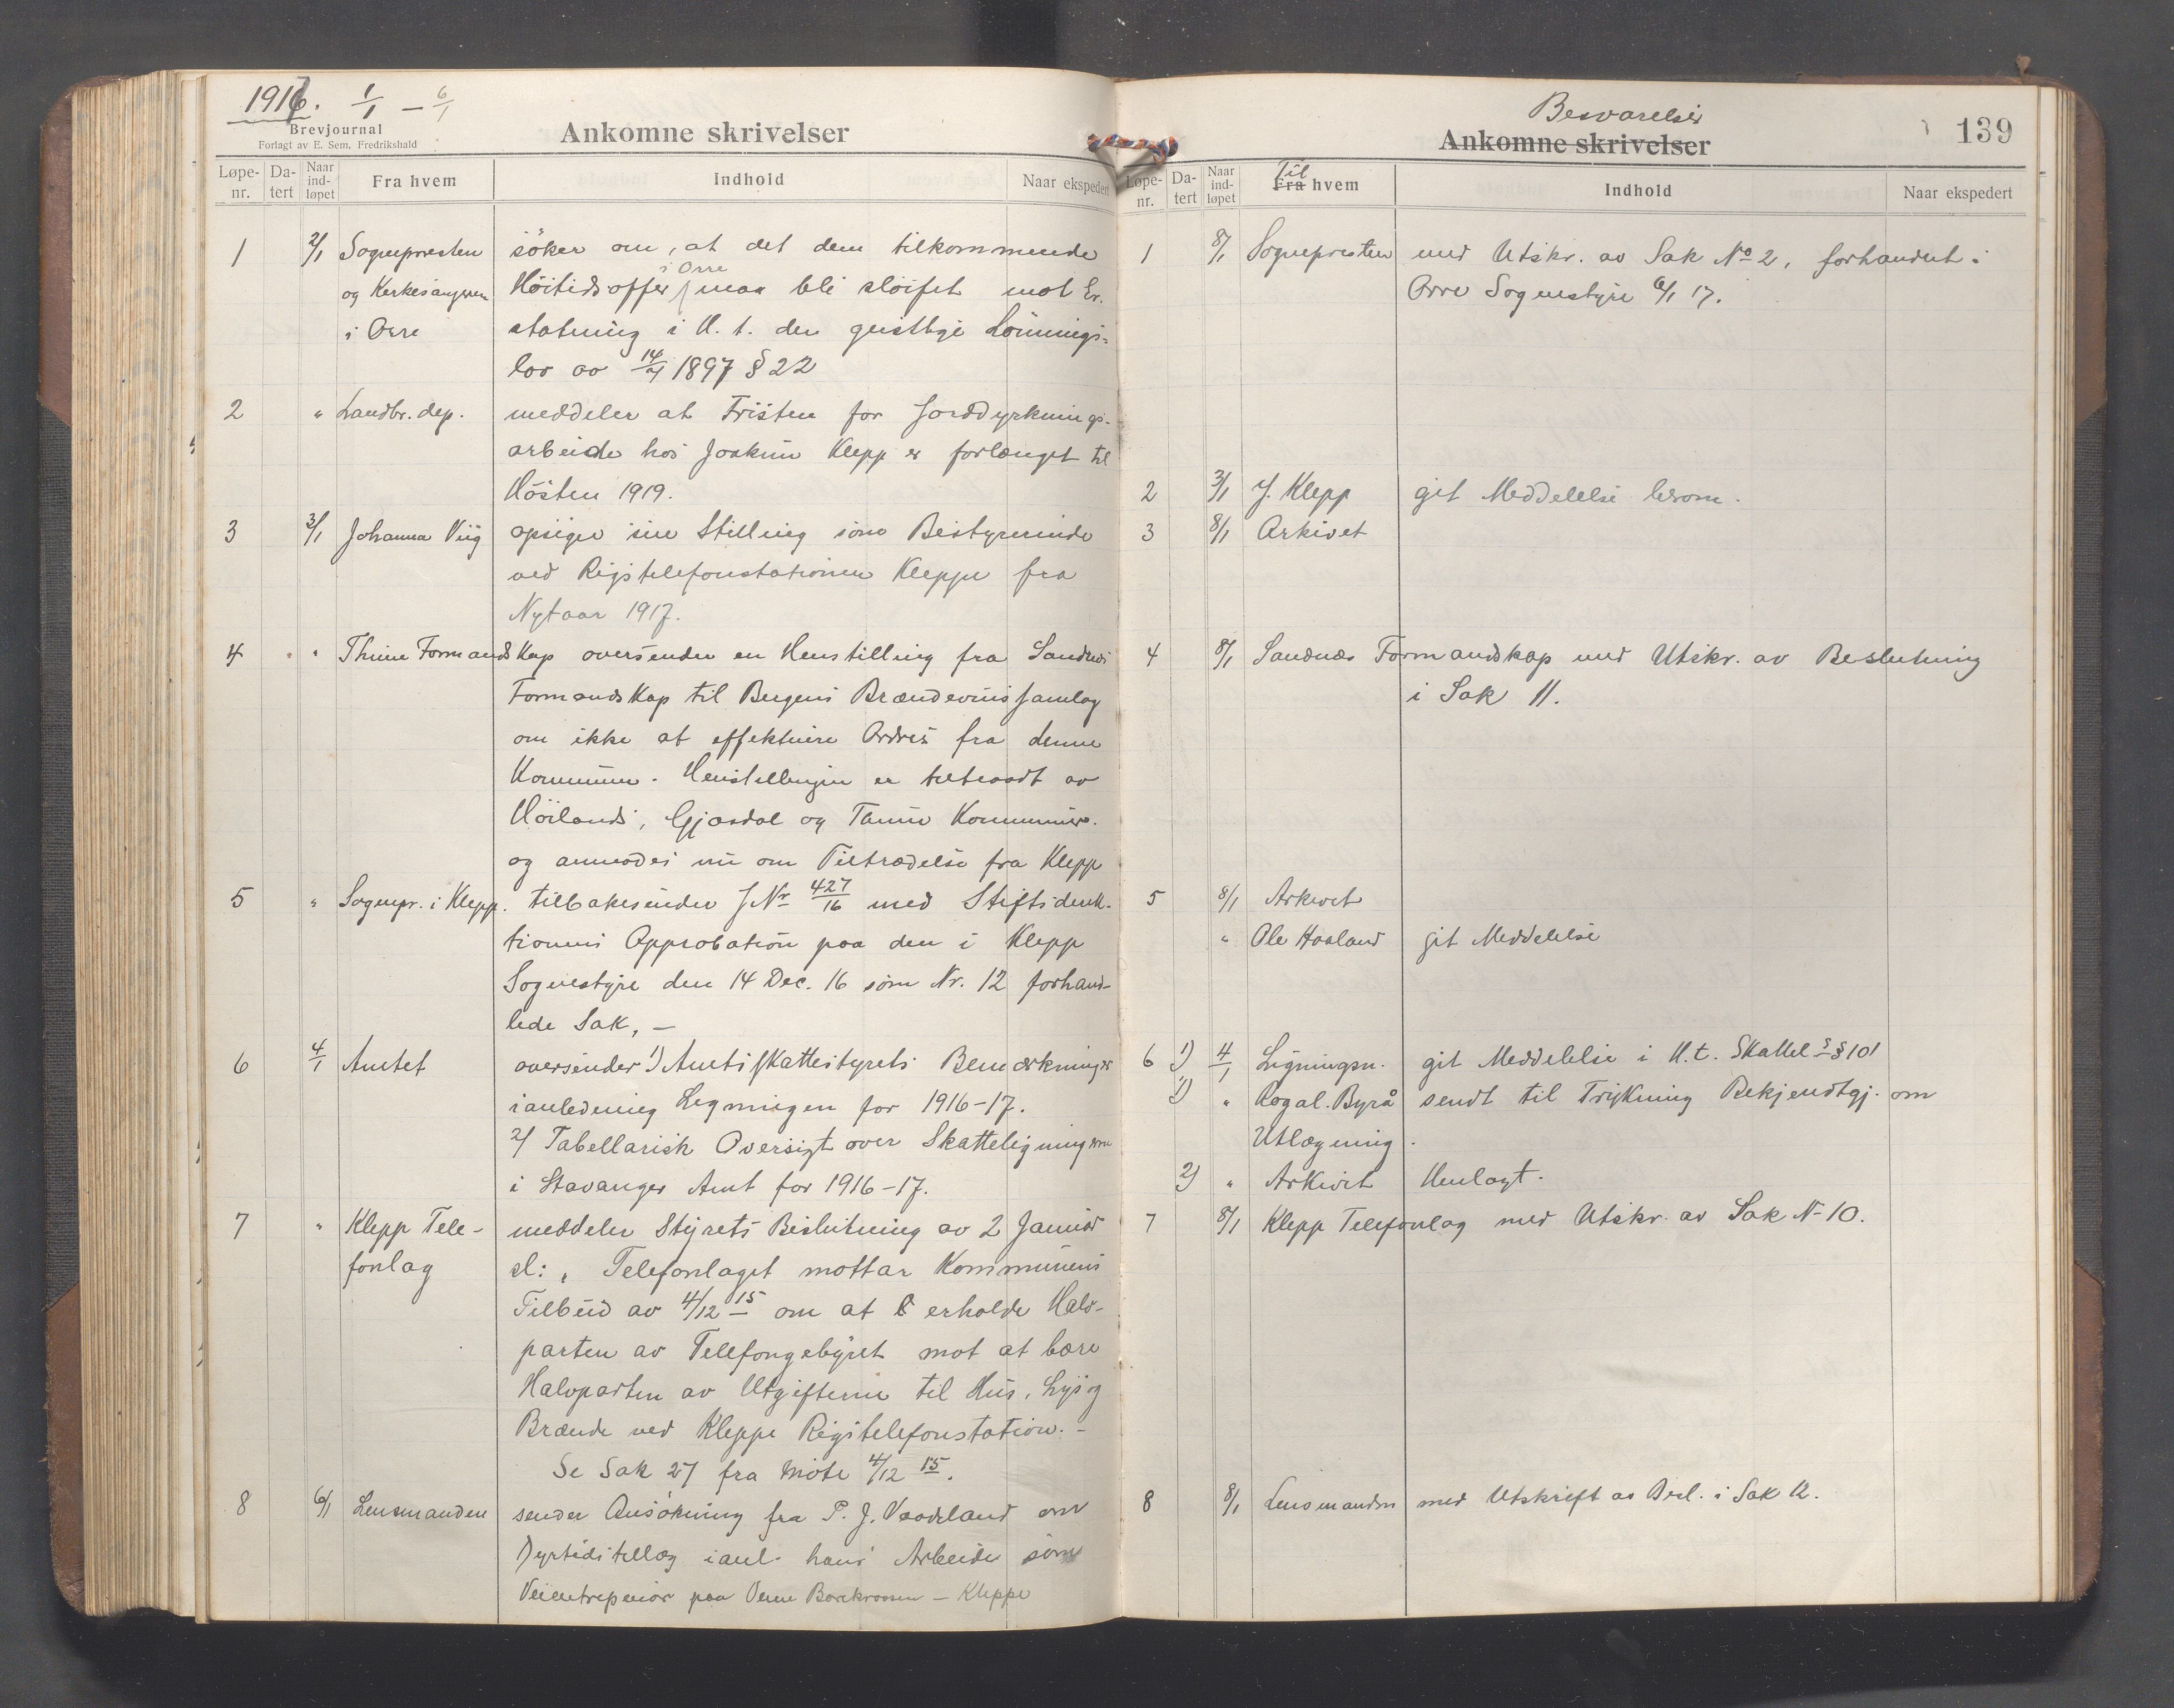 1917. 1/1 – 6/1
Brevjournal
Forlagt av E. Sem, Fredrikshald
Ankomne skrivelser
Løpe-nr. Da-tert Naar ind-løpet Fra hvem Indhold Naar ekspedert
1 2/1 Sognepresten søker om, at det dem tilkommende
og Kirkesangeren Høitidsoffer i Orre maa bli sløifet mot Er-
i Orre statning i H. t. den geistlige Lønnings-
lov av 14/7 1897 § 22
2 " Landbr. dep. meddeler at Fristen for Jorddyrknings-
arbeide hos Joakim Klepp er forlænget til
Høsten 1919.
3 3/1 Johanna Viig opsiger sin Stilling som Bestyrerinde
ved Rigstelefonstationen Kleppe fra
Nytaar 1917.
4 " " Thime Formandskap oversender en Henstilling fra Sandnes
Formandskap til Bergens Brændevinssamlag
om ikke at effektuere Ordres fra denne
Kommune. Henstillingen er tiltraadt av
Høilands, Gjesdal og Thime Kommuner.
og anmodes nu om Tiltrædelse fra Klepp
5 " Sognepr. i Klepp. tilbakesender J.Nr 427/16 med Stiftsdirek-
tionens Approbation paa den i Klepp
Sognestyre den 14 Dec. 16 som Nr. 12 forhand-
lede Sak, –
6 4/1 Amtet oversender 1) Amtsskattestyrets Bemærkninger
ianledning Ligningen for 1916–17.
2) Tabellarisk Oversigt over Skatteligningerne
i Stavanger Amt for 1916–17.
7 " Klepp Tele- meddeler Styrets Beslutning av 2 Januar
fonlag sl: „ Telefonlaget mottar Kommunens
Tilbud av 4/12 15 om at erholde Halv-
parten av Telefongebyret mot at bære
Halvparten av Utgifterne til Hus, Lys og
Brænde ved Kleppe Rigstelefonstation. –
Se Sak 27 fra Møte 4/12 15.
8 6/1 Lensmanden sender Ansøkning fra P. J. Vaadeland om
Dyrtidstillæg ianl. hans Arbeide som
Veientreprenør paa Veien Borekrossen – Kleppe
Besvarelser
Ankomne skrivelser
139
Løpe-nr. Da-tert Naar ind-løpet Til Fra hvem Indhold Naar ekspedert
1 8/1 Sognepresten med Utskr. av Sak No 2, forhandlet i
Orre Sognestyre 6/1 17.
2 3/1 J. Klepp git Meddelelse herom.
3 8/1 Arkivet
4 8/1 Sandnes Formandskap med Utskr. av Beslutning
i Sak 11.
5 8/1 Arkivet
" Ole Haaland git Meddelelse
6 1) 4/1 Ligningsn. git Meddelelse i H.t. Skattel. § 101
1) " Rogal. Byrå sendt til Trykning Bekjendtgj. om
Utlægning.
2) " Arkivet Henlagt.
7 8/1 Klepp Telefonlag med Utskr. av Sak No 10.
8 8/1 Lensmanden med Utskrift av Besl. i Sak 12.